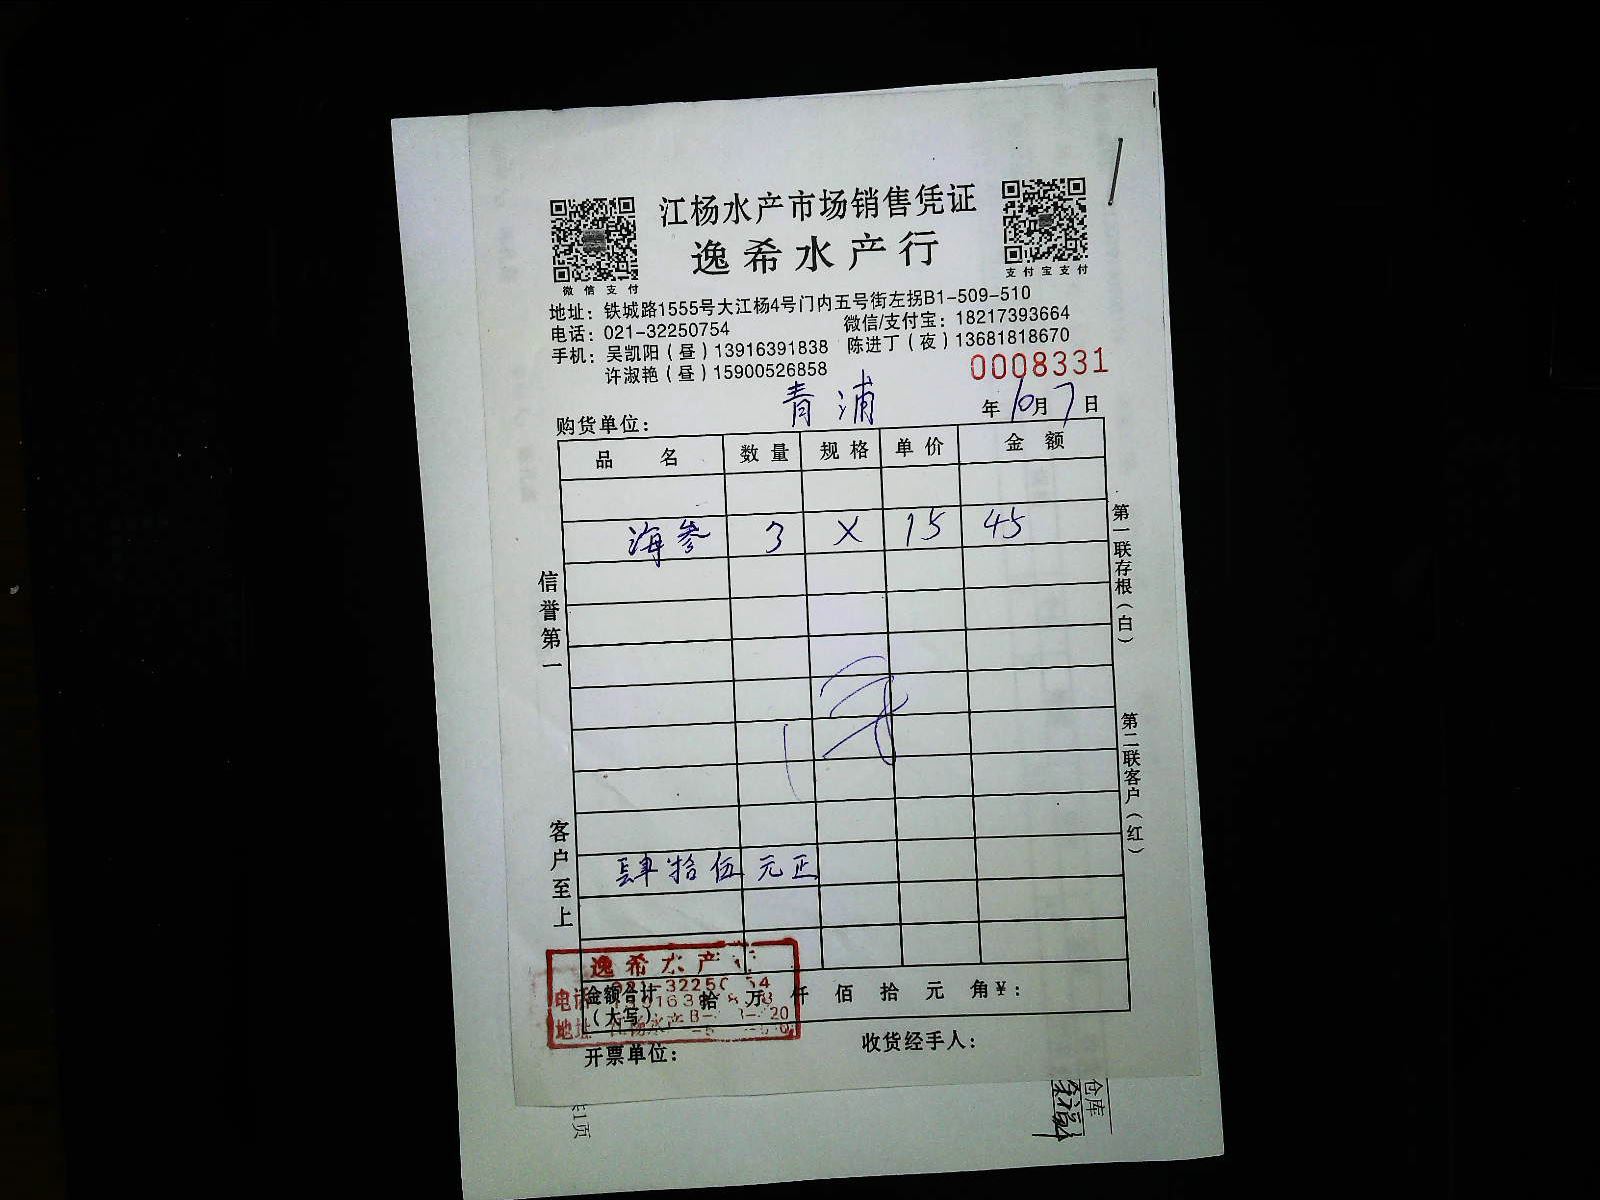 江杨水产市场销售凭证
逸希水产行
微信支付
支付宝支付
地址：铁城路1555号大江杨4号门内五号街左拐B1-509-510
电话：021-32250754 微信/支付宝：18217393664
手机：吴凯阳（昼）13916391838 陈进丁（夜）13681818670
许淑艳（昼）15900526858
0008331
购货单位： 青浦 年 10月 7日
品名 数量 规格 单价 金额
海参 3 X 15 45
肆拾伍元正
信誉第一
客户至上
第一联存根（白）
第二联客户（红）
逸希水产
电话
地址
金额合计（大写） 拾 万 仟 佰 拾 元 角 ¥：
开票单位： 收货经手人：
仓库
1页